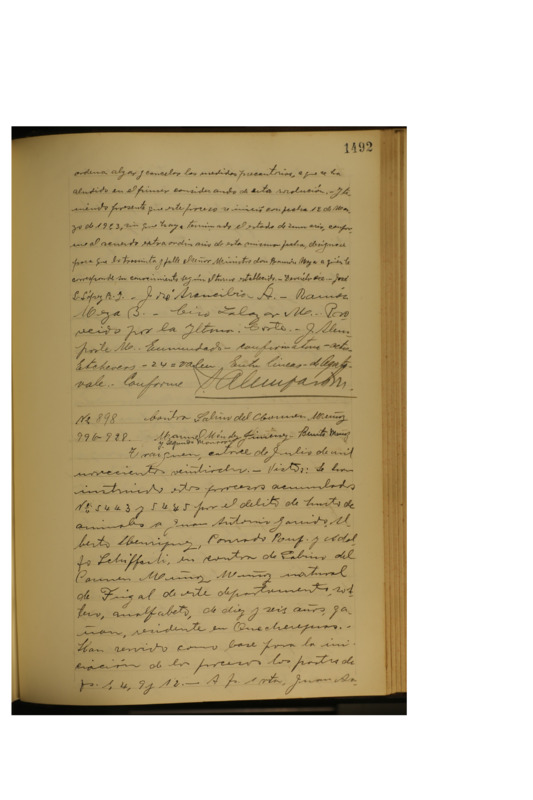 1492
ordena alzar y cancelar las medidas precautorias, a que se ha
aludido en el primer considerando de esta resolución. - Te
niendo presente que este proceso se inició con fecha 12 de Ma
yo de 1923, sin que haya terminado el estado de sumario, confor
me al acuerdo extraordinario de esta misma fecha, desígnase
para que lo tramite y falle al señor Ministro don Ramón Meza a quien le
corresponde su conocimiento según el turno establecido. - José
D. López - José Arancibia - Ramón
Meza B. - Ciro Salazar M. - Pro
veído por la Iltma. Corte. -
Enmendado -
Etchevers - 24 = valen. Entre líneas -
vale. - Conforme
No 898 Contra Sabino del Carmen Muñoz
996-928. Manuel Méndez Jiménez - Benito Muñoz
Traiguén, catorce de Julio de mil
novecientos veintiocho. - Vistos: Se han
instruido estos procesos acumulados
Nos 5443 y 5445 por el delito de hurto de
animales a Juan Antonio Garrido, Al
berto Henriquez, Conrado y Adol
fo Schifferli, en contra de Sabino del
Carmen Muñoz Muñoz natural
de de este departamento, sol
tero, analfabeto, de diez y seis años, ga
ñan, residente en Quecheregnas. -
Han servido como base para la ini
ciación de los procesos los partes de
fs. 1, 4, 9 y 12. - A fs 1 vta, Juan An